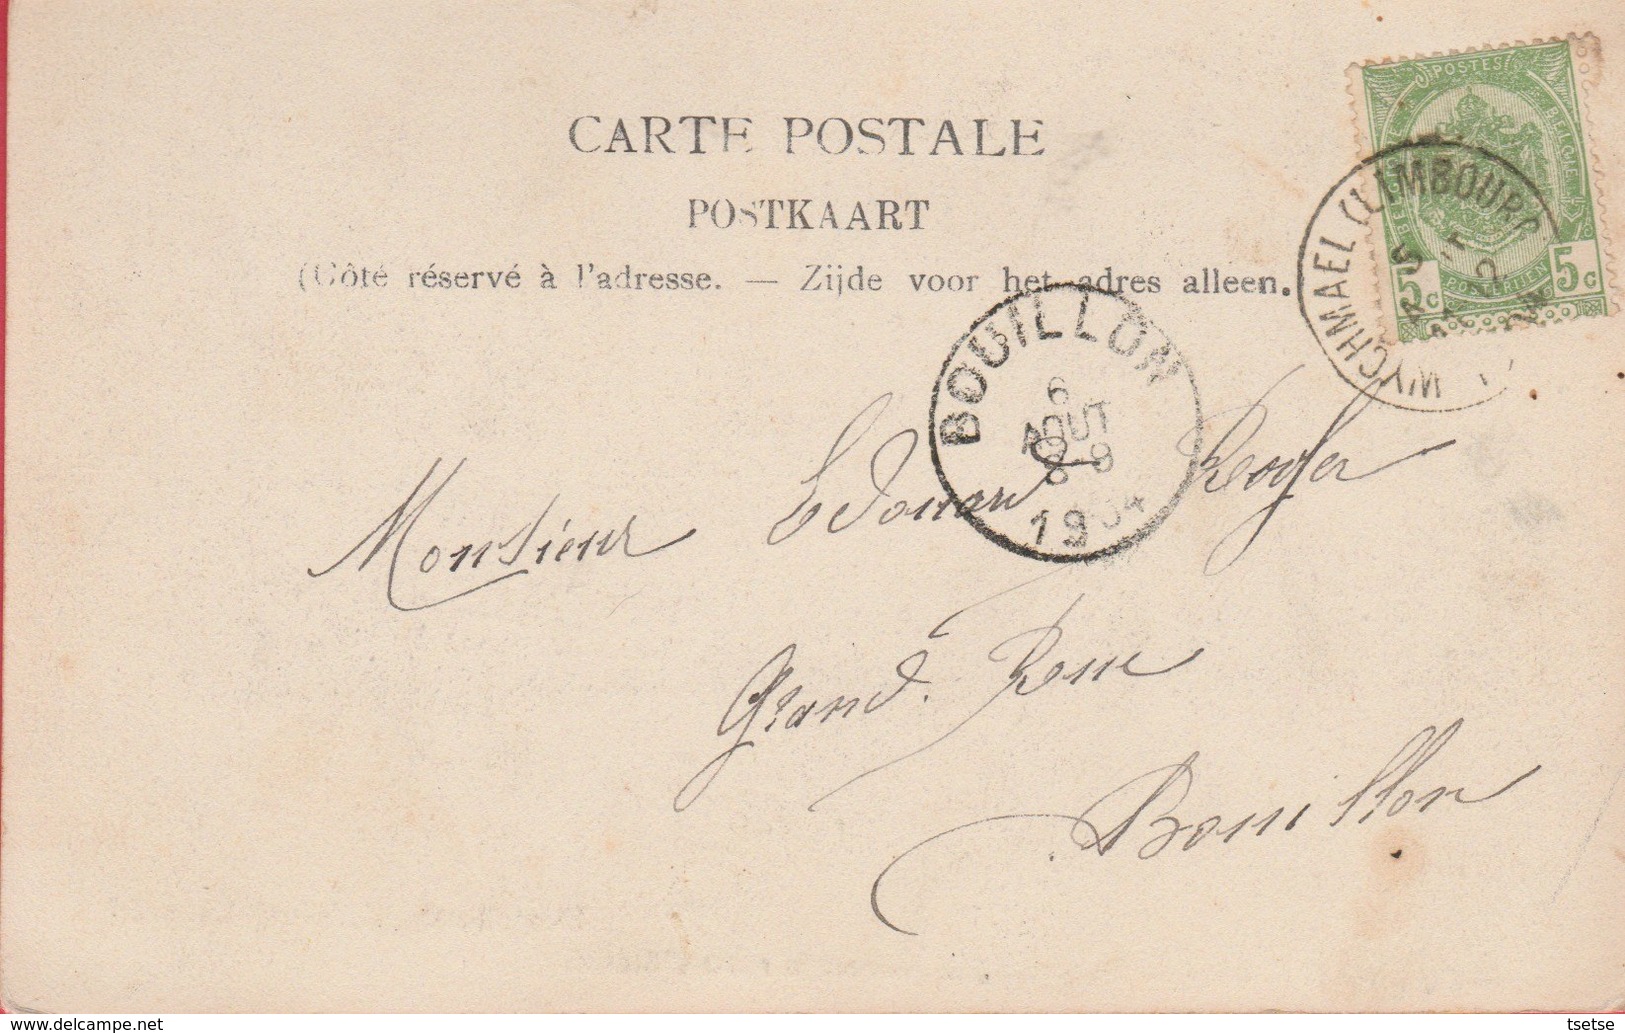 CARTE POSTALE
POSTKAART
(Côté réservé à l'adresse. — Zijde voor het adres alleen.
POSTES
BELGIQUE BELGIE
5c 5c
WYCHMAEL (LIMBOURG
BOUILLON
6
AOUT
8-9
1904
Monsieur Edouard Roger
Grand. Rue
Bouillon
delcampe.net
tsetse